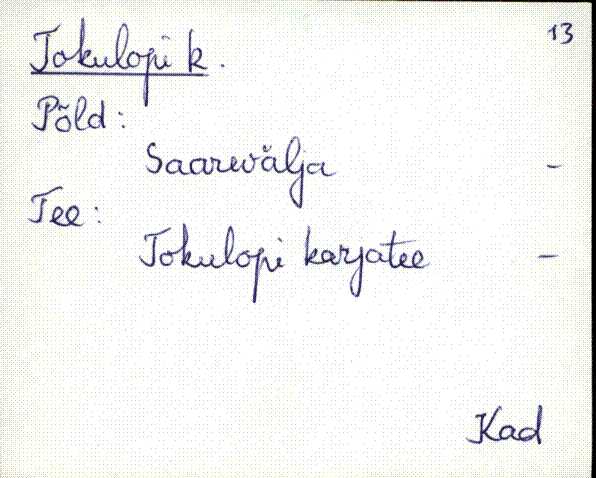 13
Tokulopi k.
Põld:
Saarevälja -
Tee:
Tokulopi karjatee -
Kad